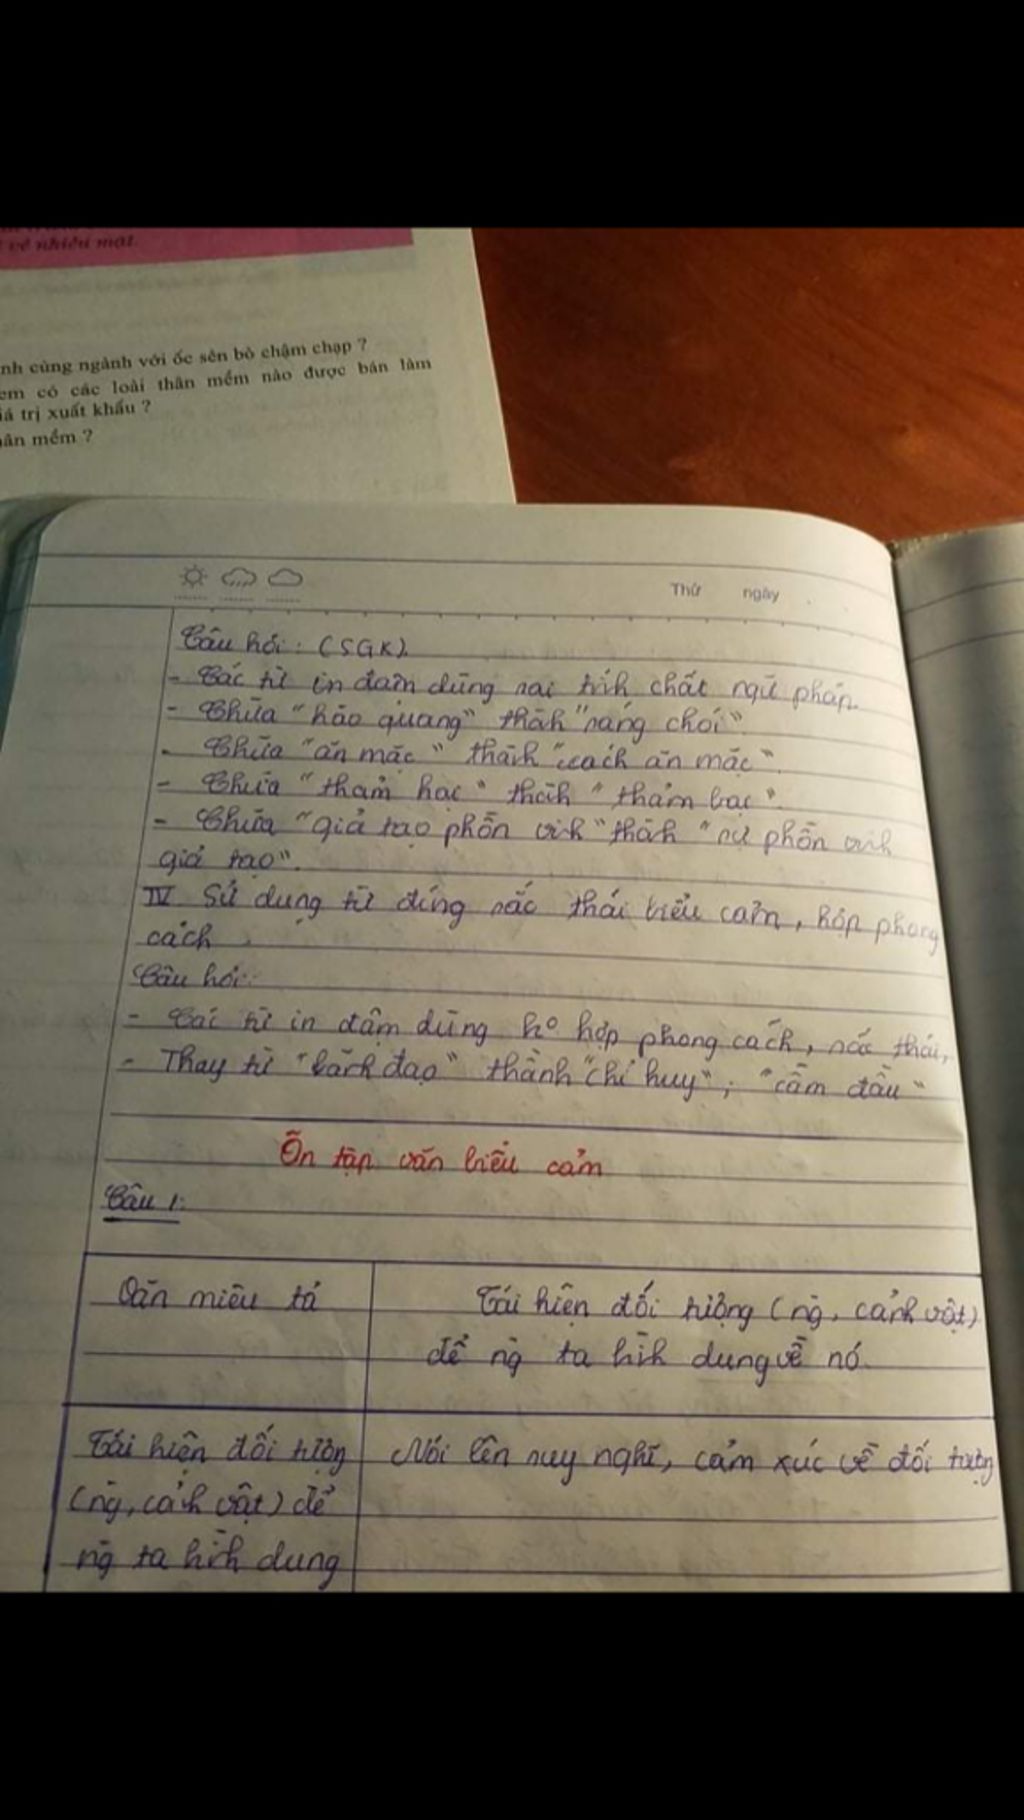 về nhiều mặt.
nh cùng ngành với ốc sên bò chậm chạp ?
em có các loài thân mềm nào được bán làm
iá trị xuất khẩu ?
ân mềm ?
Thứ ngày
Câu hỏi : (SGK).
- Các từ in đậm dùng sai tính chất ngữ pháp.
- Chữa "hào quang" thành "sáng chói".
- Chữa "ăn mặc" thành "cách ăn mặc".
- Chữa "thảm hạc" thành "thảm bạc".
- Chữa "giả tạo phồn vinh" thành "sự phồn vinh
giả tạo".
IV Sử dụng từ đúng sắc thái biểu cảm, hợp phong
cách
Câu hỏi:
- Các từ in đậm dùng kº hợp phong cách, sắc thái,
- Thay từ " đạo" thành "chỉ huy"; "cầm đầu"
Ôn tập văn biểu cảm
Câu 1:
Văn miêu tả
Tái hiện đối tượng (ng, cảnh vật)
để ng ta hình dung về nó.
Tái hiện đối tượng
(ng, cảnh vật) để
ng ta hình dung
Nói lên suy nghĩ, cảm xúc về đối tượng